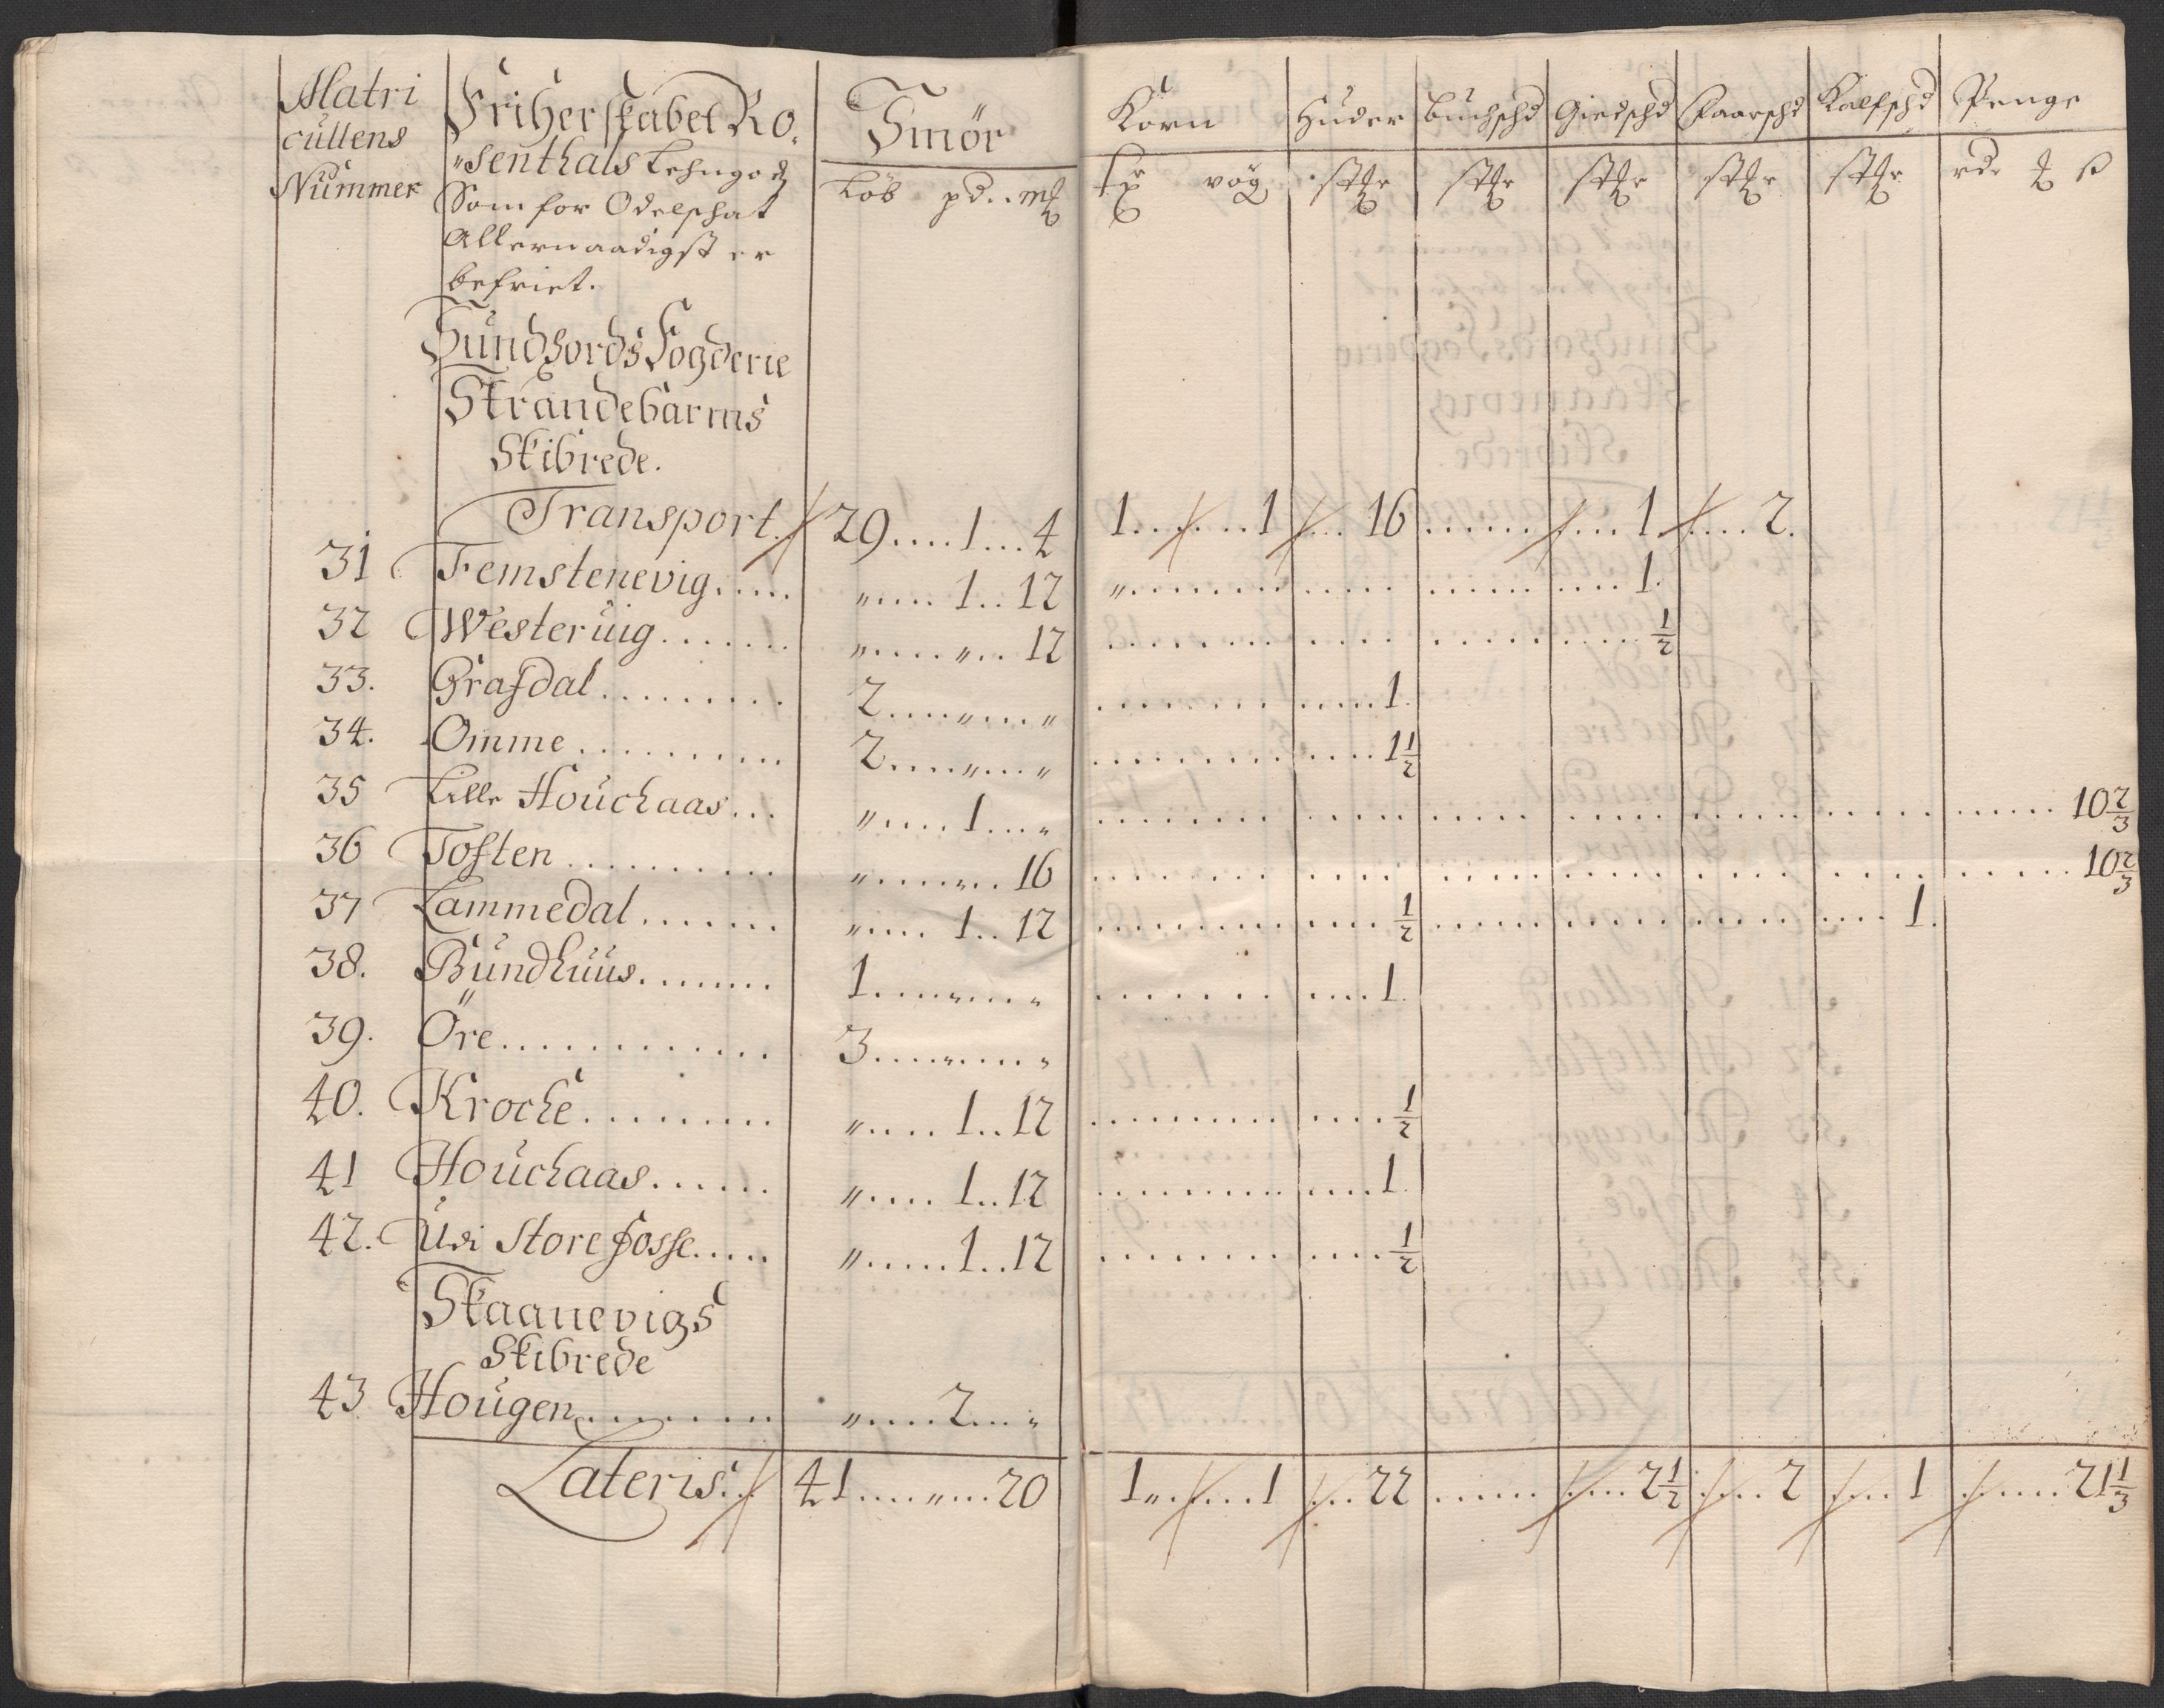 Matri
cullens
Nummer
Friherskabet Ro-
"senthals Lehngods
Som for Odelschat
Allernaadigst er
befriet.
Smör
Löb pd. mk
Korn
vog
Huder
Buchschd
Giedschd
Faarschd
Kalfschd
Penge
rd. ß
Sundhords Fogderie
Strandebarms
Skibrede.
Transport. 29....1...4 1.......1 16 ........ 1 2.
31 Femstenevig..... "..... 1.. 12 "........ 1.
32 Westeruig...... "....".. 12 ........ 1/2
33. Grafdal........ 2....."....." ........ 1.
34. Omme.......... 2....."...." ........ 1 1/2
35 Lille Houchaas... ".... 1...." ........ 10 2/3
36 Tosten......... "......".. 16 ........ 10 2/3
37 Lammedal....... ".... 1.. 12 ........ 1/2 ........ 1.
38. Bundhuus........ 1......"...." ........ 1.
39. Öre............ 3......"....."
40. Kroche......... ".... 1.. 12 ........ 1/2
41 Houchaas...... "..... 1.. 12 ........ 1.
42. Udi Store Fosse..... "..... 1.. 12 ........ 1/2
Skaanevigs
Skibrede
43 Hougen........ "..... 2...."
Lateris. 41....."....20 1"......1 22 ...... 2 1/2 2 1 21 1/3